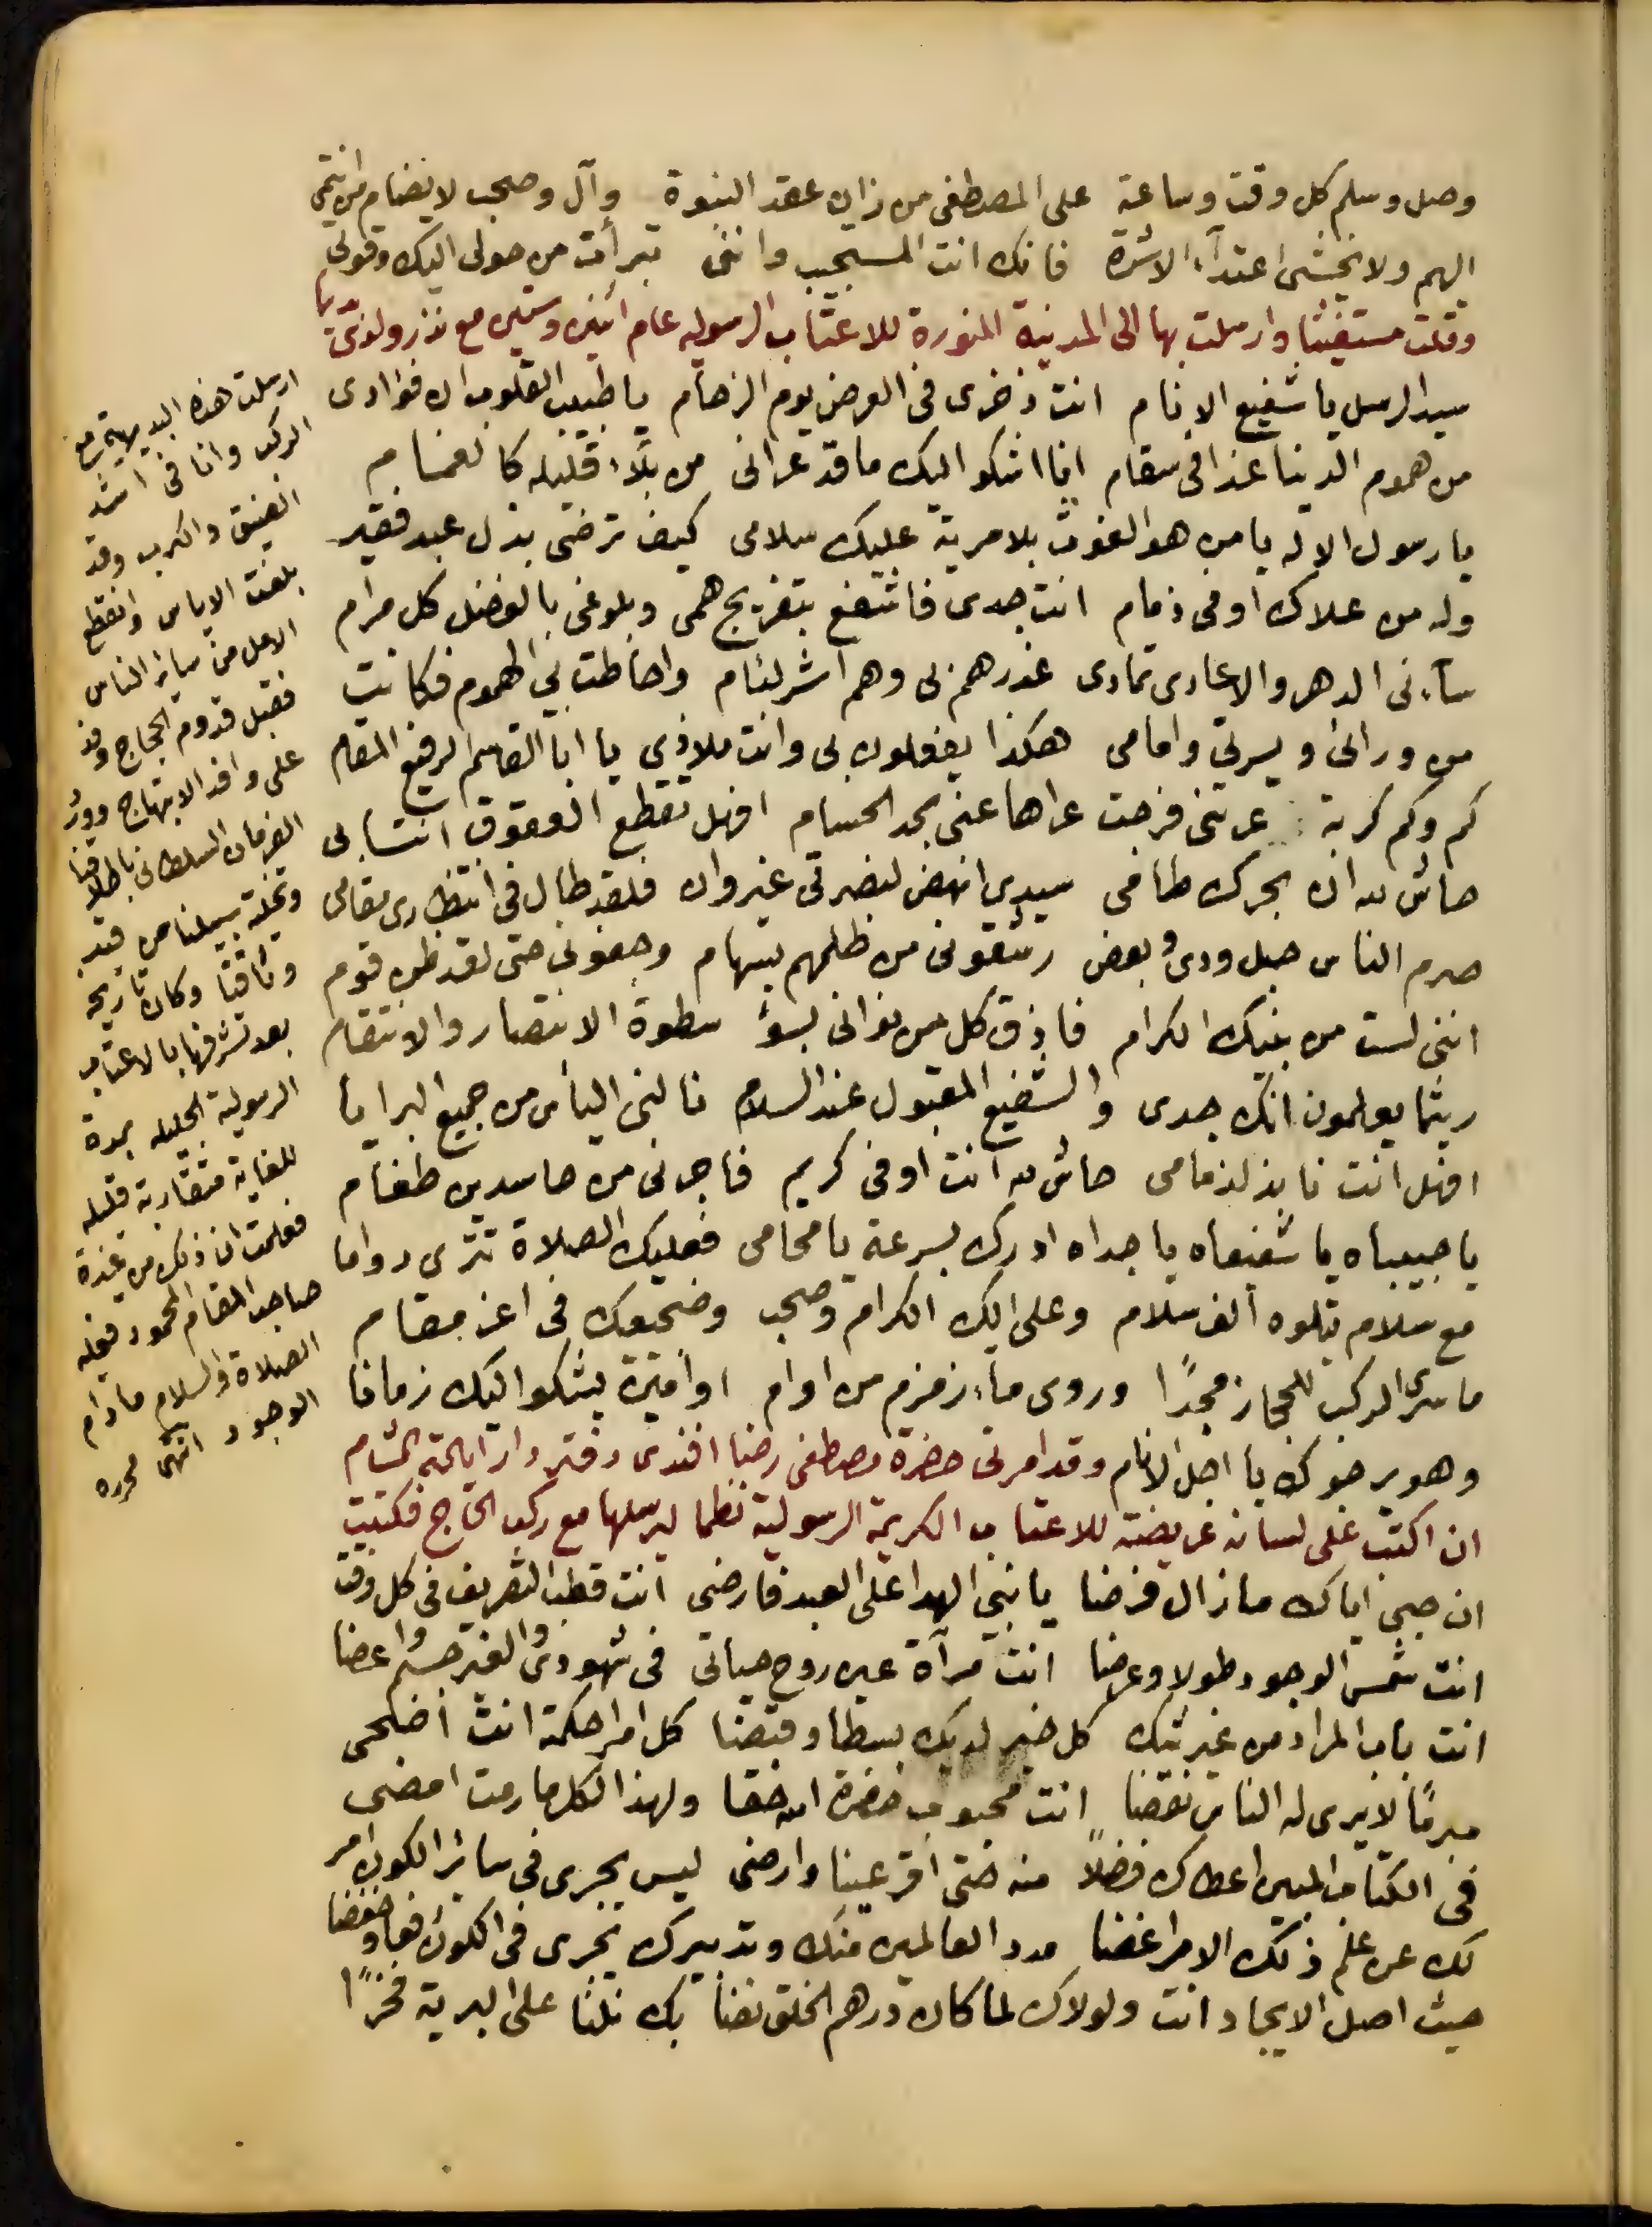 وصل وسلم كل وقت وساعة على المصطفى من زان عقد النبوة وآل وصحب لا يضام من انتمى
اليهم ولا يخشى اعتداء الاشرة فانك انت المستجيب واننى تبرأت من حولى اليك وقوتى
وقلت مستغيثا وارسلت بها الى المدينة المنورة للاعتاب الرسوليه عام اثنين وستين مع نذر ولذى بها
سيد الرسل يا شفيع الانام انت ذخرى فى العرض يوم الزحام يا طبيب القلوب ان فؤادى
من هموم الدنيا غدا فى سقام انا اشكو اليك ما قد عرانى من بلاء قليله كالغمام
يا رسول الاله يا من هو الغوث بلا مرية عليك سلامى كيف ترضى بذل عبد فقير
وله من علاك اوفى ذمام انت جدى فاشفع بتفريج همى وبلوغى بالفضل كل مرام
ساءنى الدهر والاعادى تمادى غدرهم بى وهم اشر لئام واحاطت بي الهموم فكانت
من ورائى ويسرتى وامامى هكذا يفعلون بى وانت ملاذي يا ابا القاسم الرفيع المقام
كم وكم كربة عرتنى فزحت عراها عنى بحد الحسام افهل تقطع العقوق انتسابى
حاش لله ان بحرك طامى سيدي انهض لنصرتى غير وان فلقد طال فى انتظارى مقامى
صرم الناس حبل ودى وبعض رشقونى من ظلمهم بسهام وجفونى حتى لقد ظن قوم
اننى لست من بنيك الكرام فاذق كل من نوانى بسوء سطوة الانتصار والانتقام
ريثما يعلمون انك جدى والشفيع المقبول عند السلام نالنى اليأس من جميع البرايا
افهل انت نابذ لذمامى حاش لله انت اوفى كريم فاجرنى من حاسدين طغام
يا حبيباه يا شفيعاه يا جداه ادرك بسرعة يا محامى فعليك الصلاة تترى دواما
مع سلام يتلوه ألف سلام وعلى الك الكرام وصحب وضجيعك فى اعز مقام
ما سرى الركب للحجاز مجدًا وروى ماء زمزم من اوام او امين يشكو اليك زمانا
وهو يرجوك يا اجل الانام وقد امرنى حضرة مصطفى رضا افندى دفتردار ايالة الشام
ان اكتب على لسانه عريضة للاعتاب الكريمة الرسولية نظما ليرسلها مع ركب الحاج فكتبت
ان حبي اياك ما زال فرضا يا نبي الهدا على العبد فارضى انت قطب التصريف فى كل وقت
انت شمس الوجود طولا وعرضا انت مرآة عين روح حياتى فى شهودى والغير جسم واعضا
انت باب المراد من غير شك كل خير لديك بسطا وقبضا كل امر احكمته انت اضحى
مبرمًا لا يرى له الناس نقضا انت محبوب حضرة الله حقا ولهذا لكل ما رمت امضى
فى الكتاب المبين اعطاك فضلاً منه حتى اقر عينا وارضى ليس يجرى فى سائر الكون امر
لك عن علم ذلك الامر اغضا مدد العالمين منك وتدبيرك يجرى فى الكون رفعا وخفضا
حيث اصل الايجاد انت ولولاك لما كان درهم الخلق نضا بك نلنا على البرية فخرًا
ارسلت هذه البديهية مع
الركب وانا فى اشد
الضيق والكرب وقد
بلغت الاياس وانقطع
الامل من سائر الناس
فقبل قدوم الحجاج وفد
على وافد الابتهاج وورد
الفرمان السلطانى باطلاقنا
وتخلية سبيلنا من قيد
وثاقنا وكان تاريخه
بعد تشرفها بالاعتاب
الرسولية الجليله بمدة
للغاية متقاربة قليله
فعلمت ان ذلك من نجدة
صاحب المقام المحمود فعليه
الصلاة والسلام ما دام
الوجود انتهى محرره